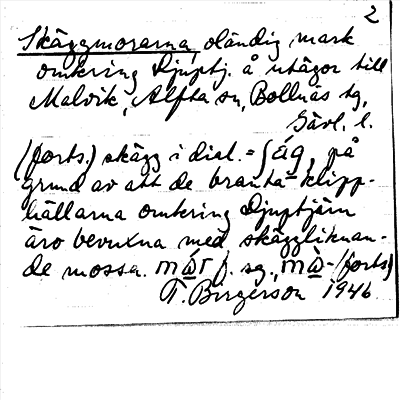 2
Skäggmorarna, oländig mark
omkring Djuptj. å utägor till
Malvik, Alfta sn, Bollnäs tg,
Gävl. l.
(forts.) skägg i dial. = ʃág, på
grund av att de branta klipp-
hällarna omkring Djuptjärn
äro bevuxna med skäggliknan-
de mossa. f. sg., (forts)
T. Birgerson 1946